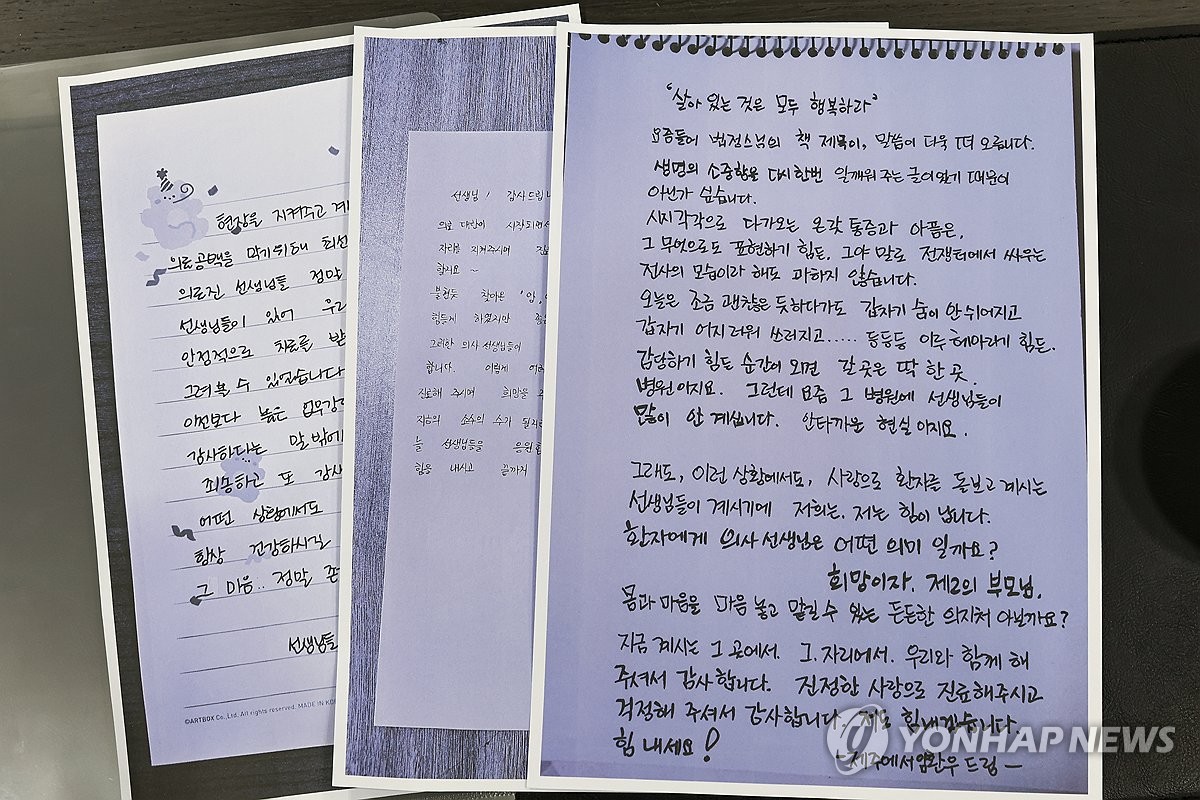 현장을 지켜주고 계
의료공백을 막기위해 최선
의료진 선생님들 정말
선생님들이 있어 우리
안정적으로 치료를 받
그려볼 수 있었습니다
이전보다 높은 업무강
감사하다는 말 밖에
죄송하고 또 감사
어떤 상황에서도
항상 건강하시길
그 마음.. 정말 존
선생님들
©ARTBOX Co.,Ltd. All rights reserved. MADE IN KOR
선생님! 감사드립니
의료 대란이 시작되면서
자리를 지켜주시며
할지요 ~
불현듯 찾아온 '암,
힘들게 하였지만
그러한 의사 선생님들이
합니다. 이렇게 어려
진료해 주시며 희망을 주
지금의 소수의 수가 될지라
늘 선생님들을 응원합
힘을 내시고 끝까지
"살아 있는 것은 모두 행복하라"
요즘들어 법정스님의 책 제목이, 말씀이 더욱 떠 오릅니다.
생명의 소중함을 다시한번 일깨워 주는 글이었기 때문이
아닌가 싶습니다.
시시각각으로 다가오는 온갖 통증과 아픔은,
그 무엇으로도 표현하기 힘든, 그야 말로 전쟁터에서 싸우는
전사의 모습이라 해도 과하지 않습니다.
오늘은 조금 괜찮은 듯하다가도 갑자기 숨이 안쉬어지고
갑자기 어지러워 쓰러지고..... 등등등 이루 헤아리기 힘든.
감당하기 힘든 순간이 오면 갈 곳은 딱 한 곳.
병원이지요. 그런데 요즘 그 병원에 선생님들이
많이 안 계십니다. 안타까운 현실이지요.
그래도, 이런 상황에서도, 사랑으로 환자를 돌보고 계시는
선생님들이 계시기에 저희는, 저는 힘이 납니다.
환자에게 의사 선생님은 어떤 의미 일까요?
희망이자, 제2의 부모님.
몸과 마음을 마음 놓고 맡길 수 있는 든든한 의지처 아닐까요?
지금 계시는 그 곳에서. 그 자리에서. 우리와 함께 해
주셔서 감사합니다. 진정한 사랑으로 진료해주시고
걱정해 주셔서 감사합니다. 저도 힘내겠습니다.
힘 내세요!
-제주에서 암환우 드림-
YONHAP NEWS